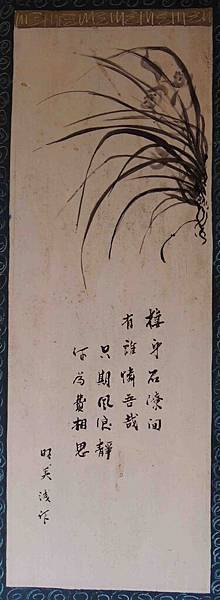 棲身石澗間
有誰憐吾哉
只期風浪靜
何為費相思
明美淺作